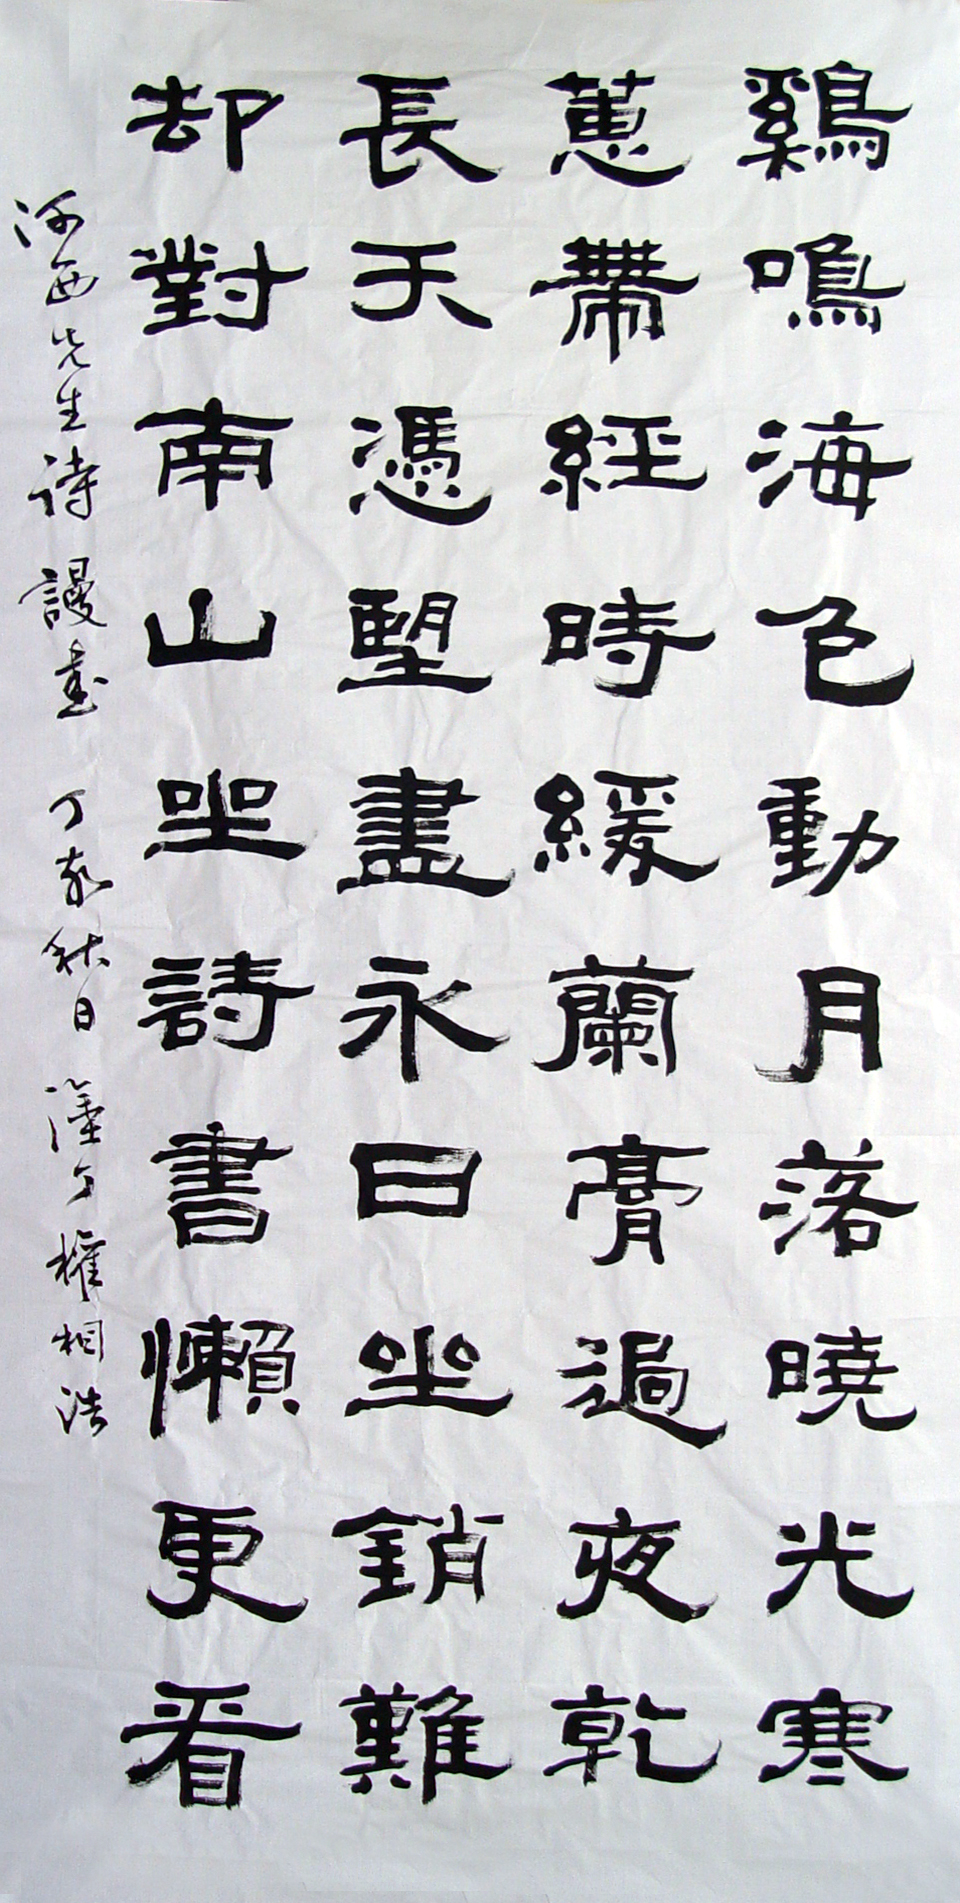 鷄鳴海色動月落曉光寒
蕙帶經時緩蘭膏過夜乾
長天憑堊盡永日坐銷難
却對南山坐詩書懶更看
河西先生詩 謾書 丁亥秋日 權相浩